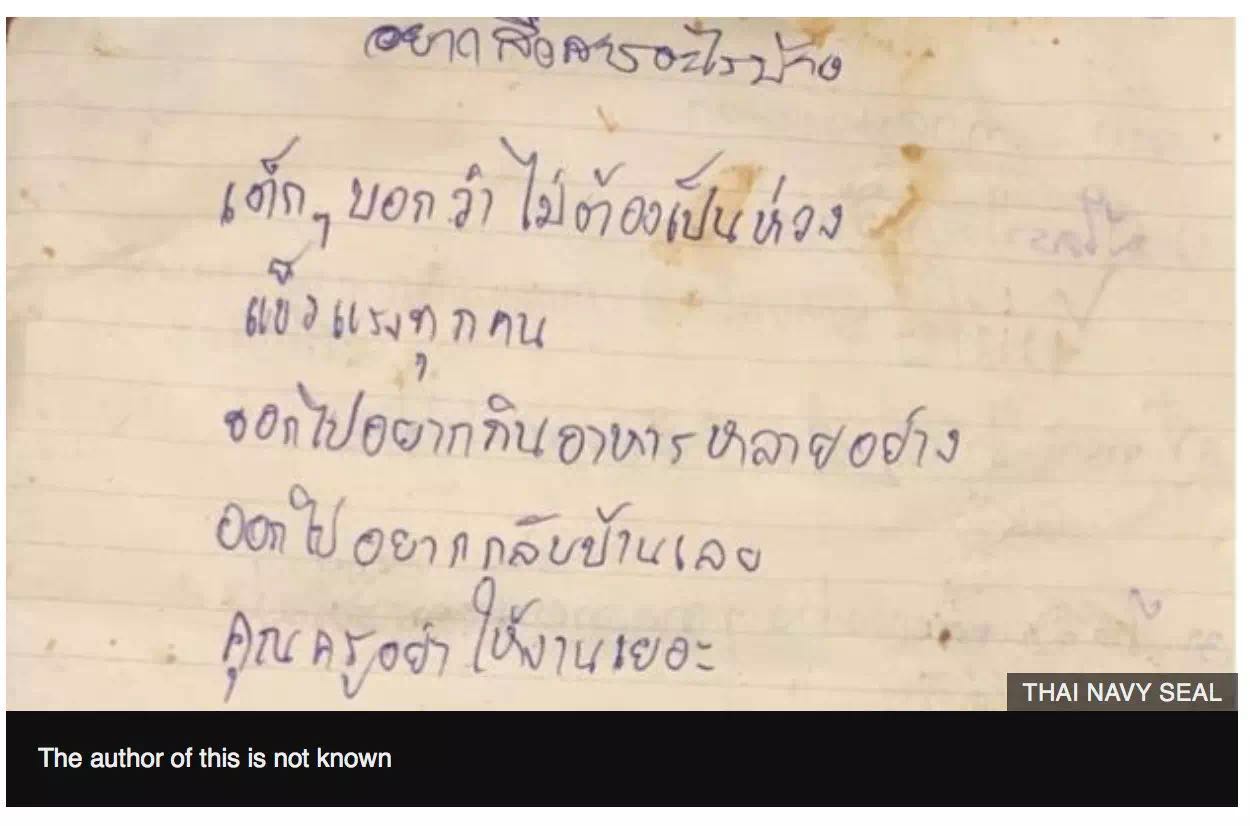 อยากสื่อสารอะไรบ้าง
เด็กๆ บอกว่า ไม่ต้องเป็นห่วง
แข็งแรงทุกคน
ออกไปอยากกินอาหารหลายอย่าง
ออกไปอยากกลับบ้านเลย
คุณครูอย่าให้งานเยอะ
THAI NAVY SEAL
The author of this is not known